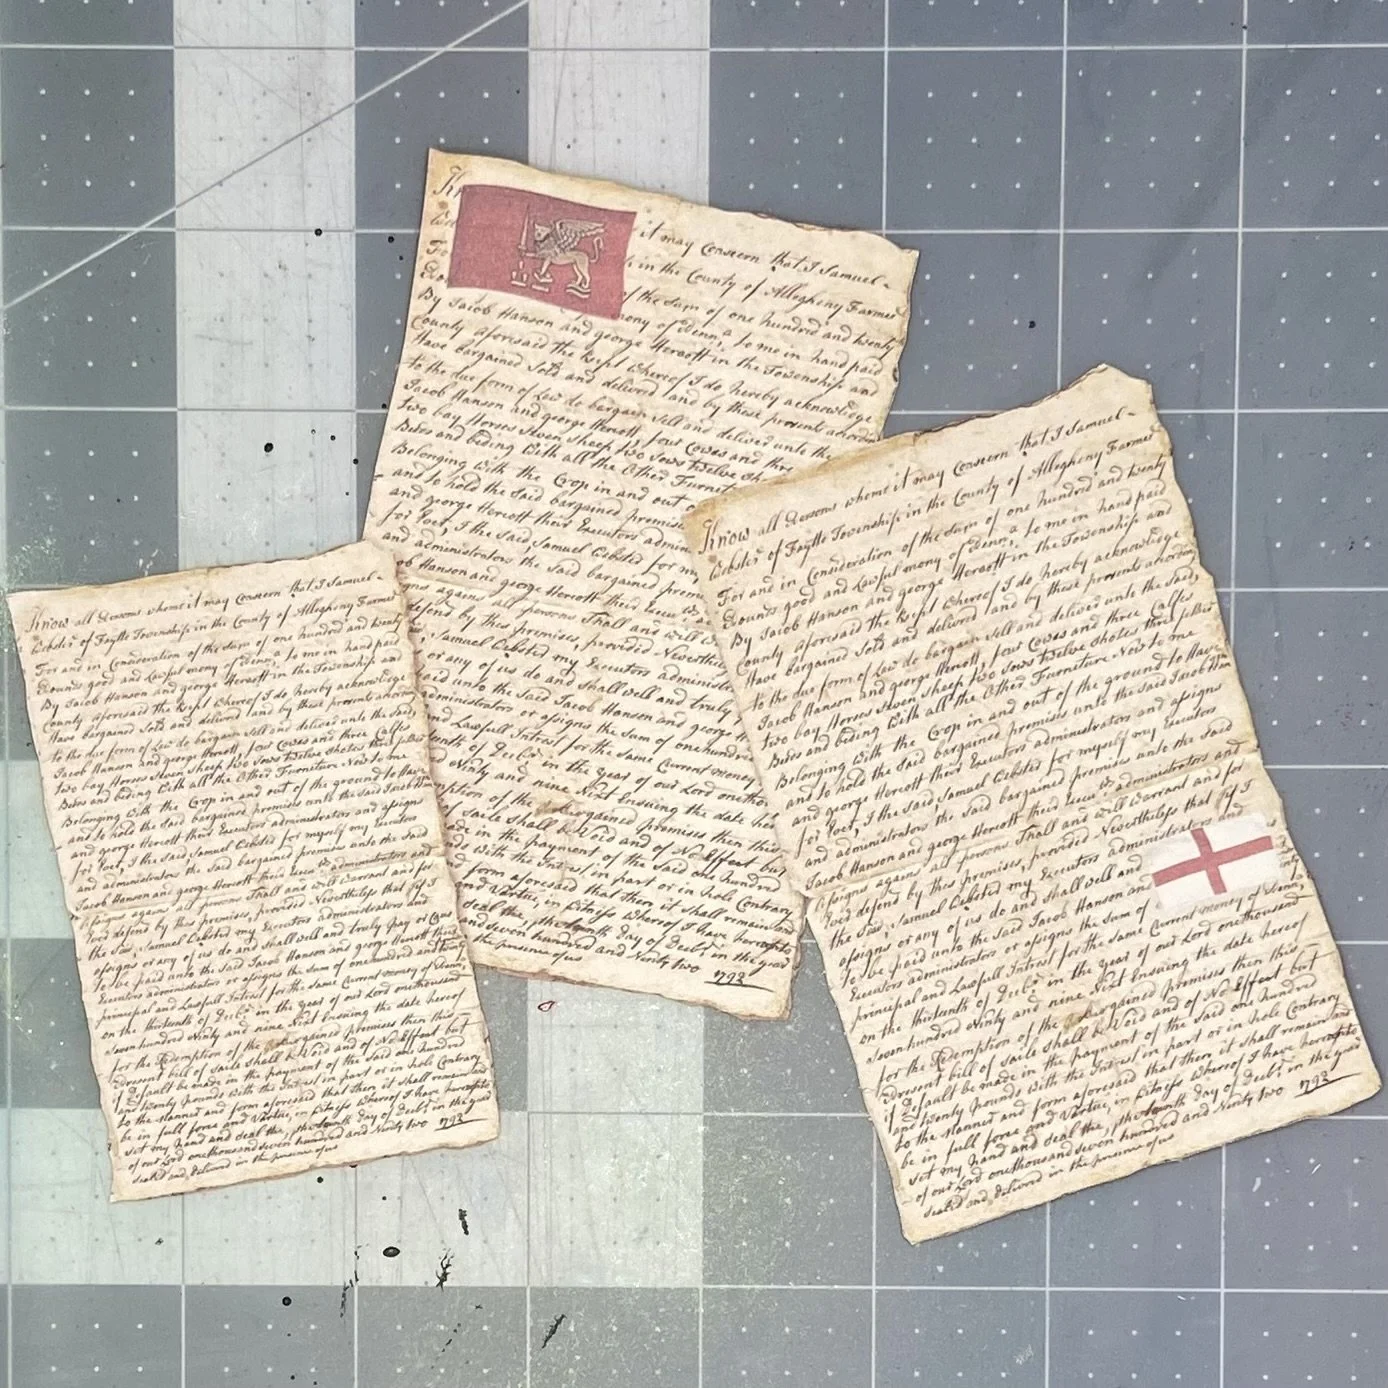 it may Concern that I Samuel
in the County of Allegheny Farmer
of the Sum of one hundred and twenty
mony of to me in hand paid
By Jacob Hanson and george Hercott in the Township and
County aforisaid the whereof I do hereby acknowledge
Have bargained Sold and delivered and by these presents according
to the due form of Law do bargain Sell and deliver unto the
Jacob Hanson and george Hercott, four Cowes and thre
two bay Horses Seven Sheep two Sows twelve Sh
Beds and beding With all the Other Furnit
Belonging With the Crop in and out o
and to hold the Said bargained premise
and george Hercott their Executors admin
for I the Said Samuel Webster for my
and administrators the Said bargained prem
ob Hanson and george Hercott their
gns against all persons Shall and will
defend by this premises, provided Neverthe
Samuel Webster my Executors administr
or any of us do and Shall well and truly
aid unto the Said Jacob Hanson and george H
administrators or assigns the Sum of one hundred
and Lawfull Intrest for the Same Current money
of in the year of our Lord onethou
Ninty and nine Next Ensuing the date here
mption of the Bargained premises then this
of saile Shall be Void and of No Effect but
ade in the payment of the Said one hundred
ds With the Intrest in part or in hole Contrary
form aforesaid that then it shall remain and
and Vartue, in Witness Whereof I have hereunto
seal the, day of in the year
and seven hundred and Ninty two 1792
the presence of us
Know all Persons whome it may Concern that I Samuel
Webster of Township in the County of Allegheny Farmer
For and in Consideration of the Sum of one hundred and twenty
Pounds good and Lawful mony of to me in hand paid
By Jacob Hanson and george Hercott in the Township and
County aforisaid the whereof I do hereby acknowledge
Have bargained Sold and delivered and by these presents according
to the due form of Law do bargain Sell and deliver unto the Said
Jacob Hanson and george Hercott, four Cowes and three Calfes
two bay Horses Seven Sheep two Sows twelve Shotes three
Beds and beding With all the Other Furniture Now to me
Belonging With the Crop in and out of the ground to Have
and to hold the Said bargained premises unto the Said Jacob
and george Hercott their Executors administrators and assigns
for I the Said Samuel Webster for myself my Executors
and administrators the Said bargained premises unto the Said
Jacob Hanson and george Hercott their administrators and
assigns against all persons Shall and will Warrant and for
Ever defend by this premises, provided Nevertheless that if I
the Samuel Webster my Executors administrators and
assigns or any of us do and Shall well and truly Pay or Caus
To be paid unto the Said Jacob Hanson and george Hercott their
Executors administrators or assigns the Sum of one hundred and
principal and Lawfull Intrest for the Same Current money of
on the thirteenth of in the year of our Lord onethousand
Seven hundred Ninty and nine Next Ensuing the date hereof
for the Redemption of the Bargained premises then this
present bill of saile Shall be Void and of No Effect but
if Default be made in the payment of the Said one hundred
and twenty pounds With the Intrest in part or in hole Contrary
to the Manner and form aforesaid that then it shall remain and
be in full force and Vartue, in Witness Whereof I have hereunto
set my hand and seal the, day of in the year
of our Lord onethousand seven hundred and Ninty two 1792
sealed and delivered in the presence of us
Know all Persons whome it may Concern that I Samuel
Webster of Township in the County of Allegheny Farmer
For and in Consideration of the Sum of one hundred and twenty
Pounds good and Lawful mony of to me in hand paid
By Jacob Hanson and george Hercott in the Township and
County aforisaid the whereof I do hereby acknowledge
Have bargained Sold and delivered and by these presents according
to the due form of Law do bargain Sell and deliver unto the Said
Jacob Hanson and george Hercott, four Cowes and three Calfes
two bay Horses Seven Sheep two Sows twelve Shotes three
Beds and beding With all the Other Furniture Now to me
Belonging With the Crop in and out of the ground to Have
and to hold the Said bargained premises unto the Said Jacob
and george Hercott their Executors administrators and assigns
for I the Said Samuel Webster for myself my Executors
and administrators the Said bargained premises unto the Said
Jacob Hanson and george Hercott their administrators and
assigns against all persons Shall and will Warrant and for
Ever defend by this premises, provided Nevertheless that if I
the Samuel Webster my Executors administrators and
assigns or any of us do and Shall well and
To be paid unto the Said Jacob Hanson and
Executors administrators or assigns the Sum of
principal and Lawfull Intrest for the Same Current money of
on the thirteenth of in the year of our Lord onethousand
Seven hundred Ninty and nine Next Ensuing the date hereof
for the Redemption of the Bargained premises then this
present bill of saile Shall be Void and of No Effect but
if Default be made in the payment of the Said one hundred
and twenty pounds With the Intrest in part or in hole Contrary
to the Manner and form aforesaid that then it shall remain and
be in full force and Vartue, in Witness Whereof I have hereunto
set my hand and seal the, day of in the year
of our Lord onethousand seven hundred and Ninty two 1792
sealed and delivered in the presence of us